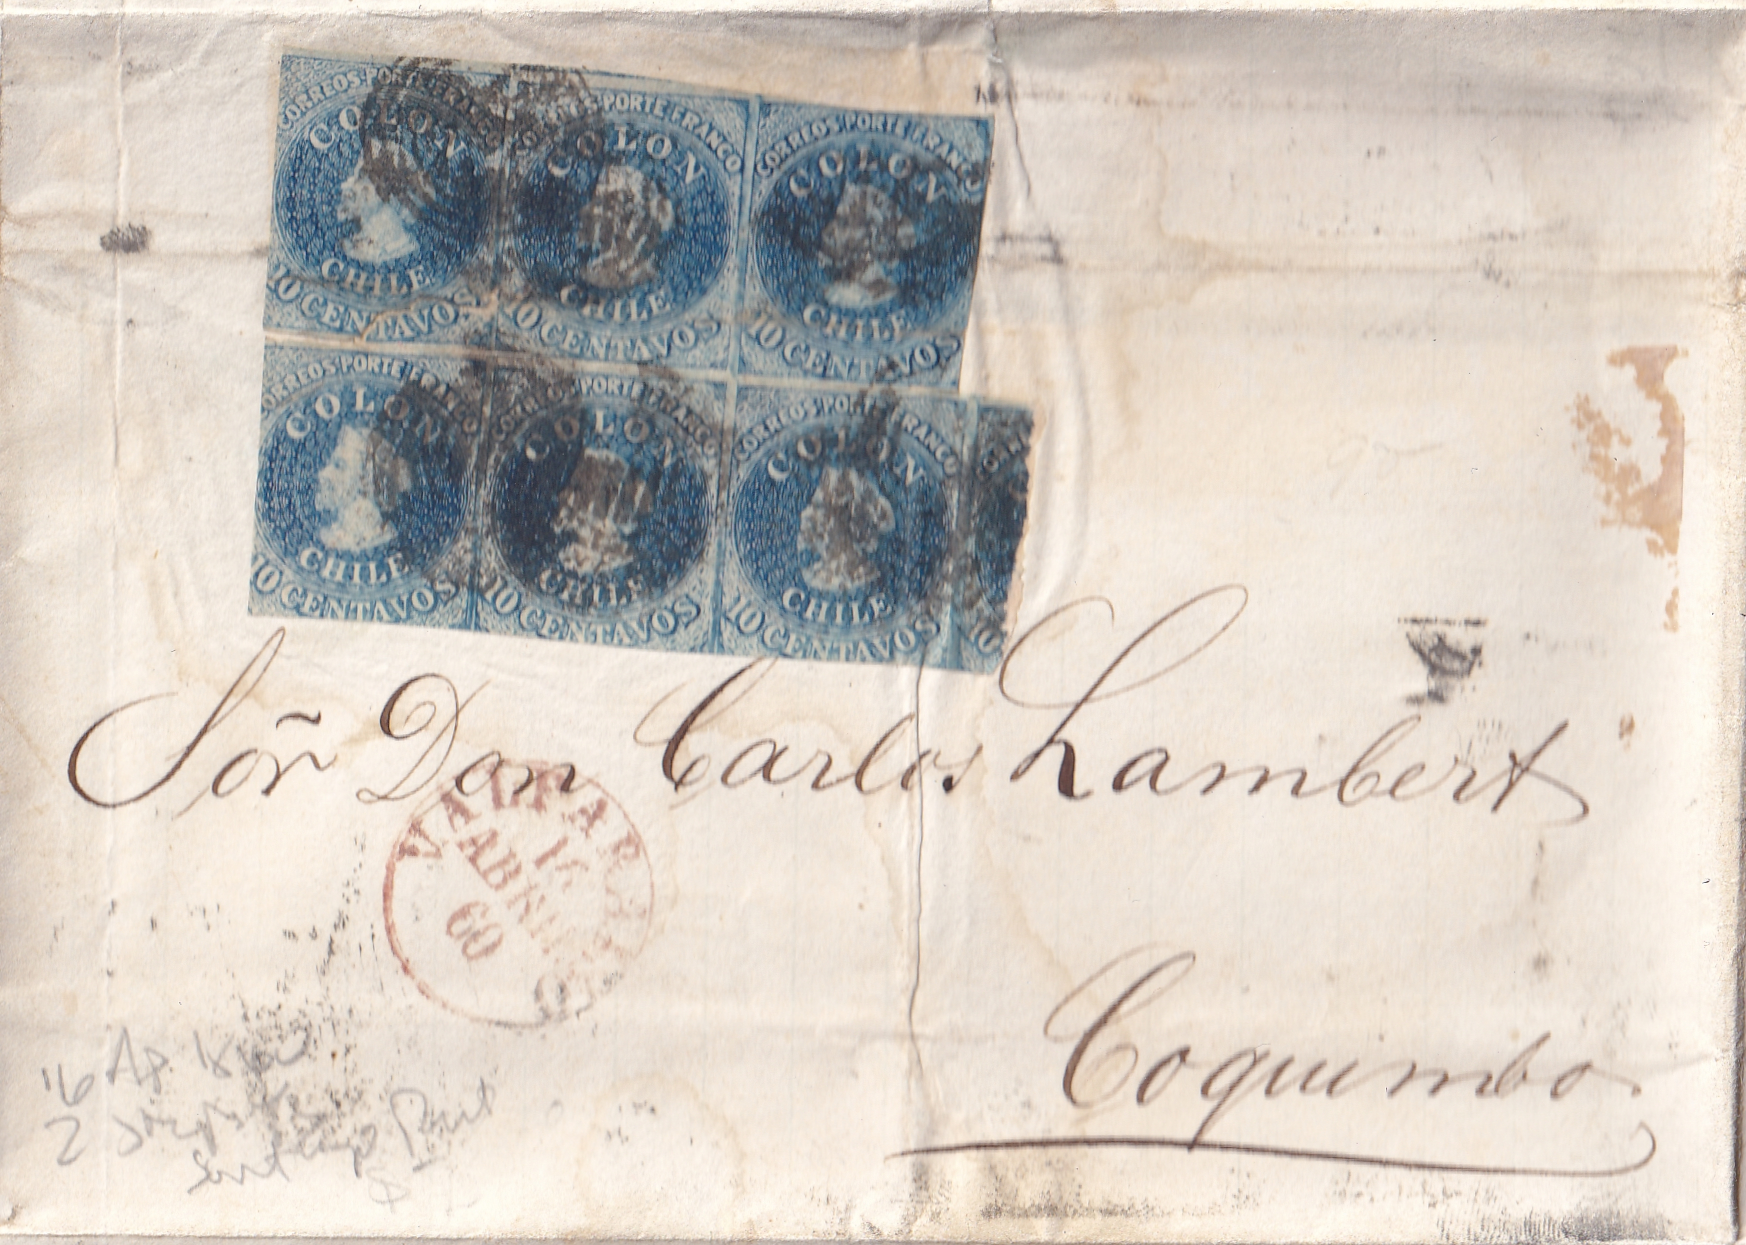 CORREOS PORTE FRANCO CORREOS PORTE FRANCO CORREOS PORTE FRANCO
COLON COLON COLON
CHILE CHILE CHILE
10 CENTAVOS 10 CENTAVOS 10 CENTAVOS
CORREOS PORTE FRANCO CORREOS PORTE FRANCO CORREOS PORTE FRANCO
COLON COLON COLON
CHILE CHILE CHILE
10 CENTAVOS 10 CENTAVOS 10 CENTAVOS 10
Sor̃ Don Carlos Lambert
VALPARAISO
16
ABRIL
60
Coquimbo
16 Ap
2